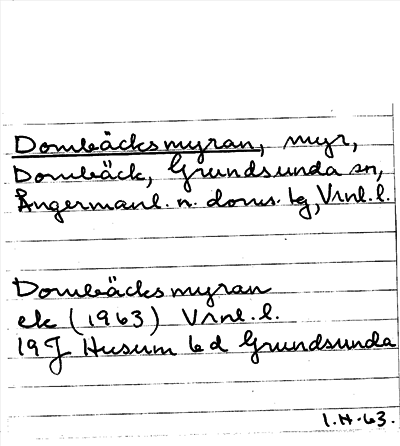 Dombäcksmyran, myr,
Dombäck, Grundsunda sn,
Ångermanl. n. doms. bg, Vrnl. l.
Dombäcksmyran
ek (1963) Vrnl. l.
19J Husum bd Grundsunda
I.H.63.